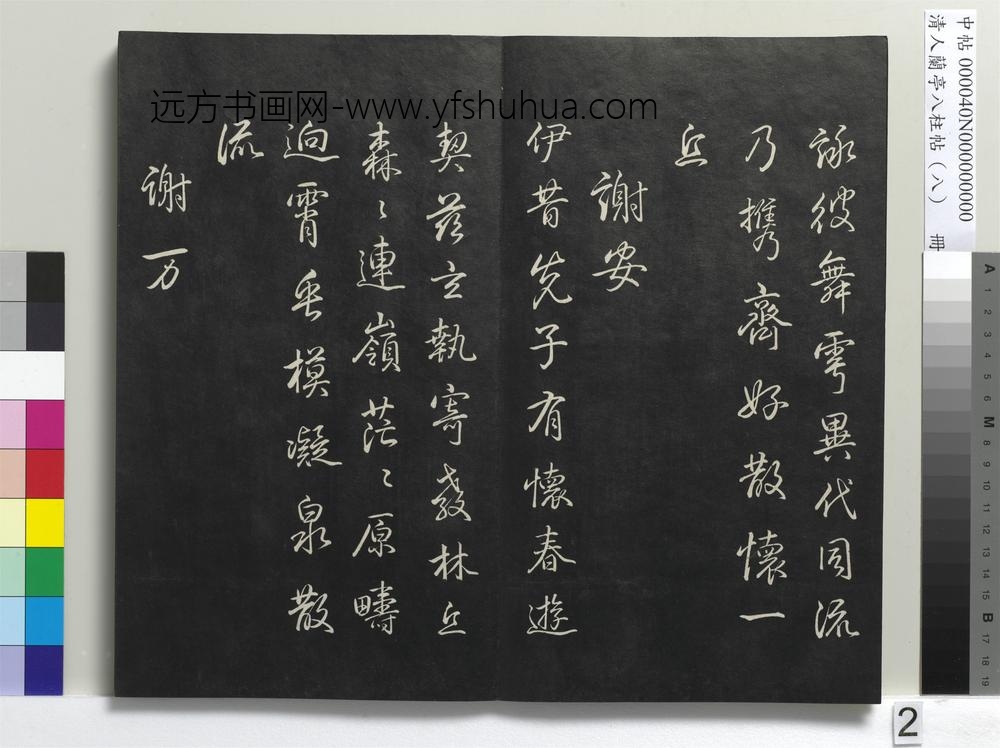 远方书画网-www.yfshuhua.com
詠彼舞雩異代同流
乃携齊好散懷一
丘
謝安
伊昔先子有懷春遊
契茲言執寄敖林丘
森〻連嶺茫〻原疇
迥霄垂模凝泉散
流
謝万
中帖 000040N000000000
清人蘭亭八柱帖(八) 冊
A 1 2 3 4 5 6 M 8 9 10 11 12 13 14 15 B 17 18 19
2